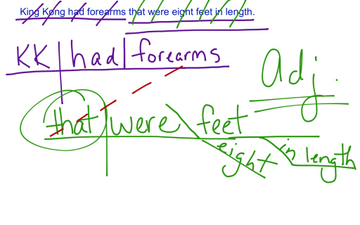 King Kong had forearms that were eight feet in length.
KK had forearms
Adj.
that were feet
eight in length